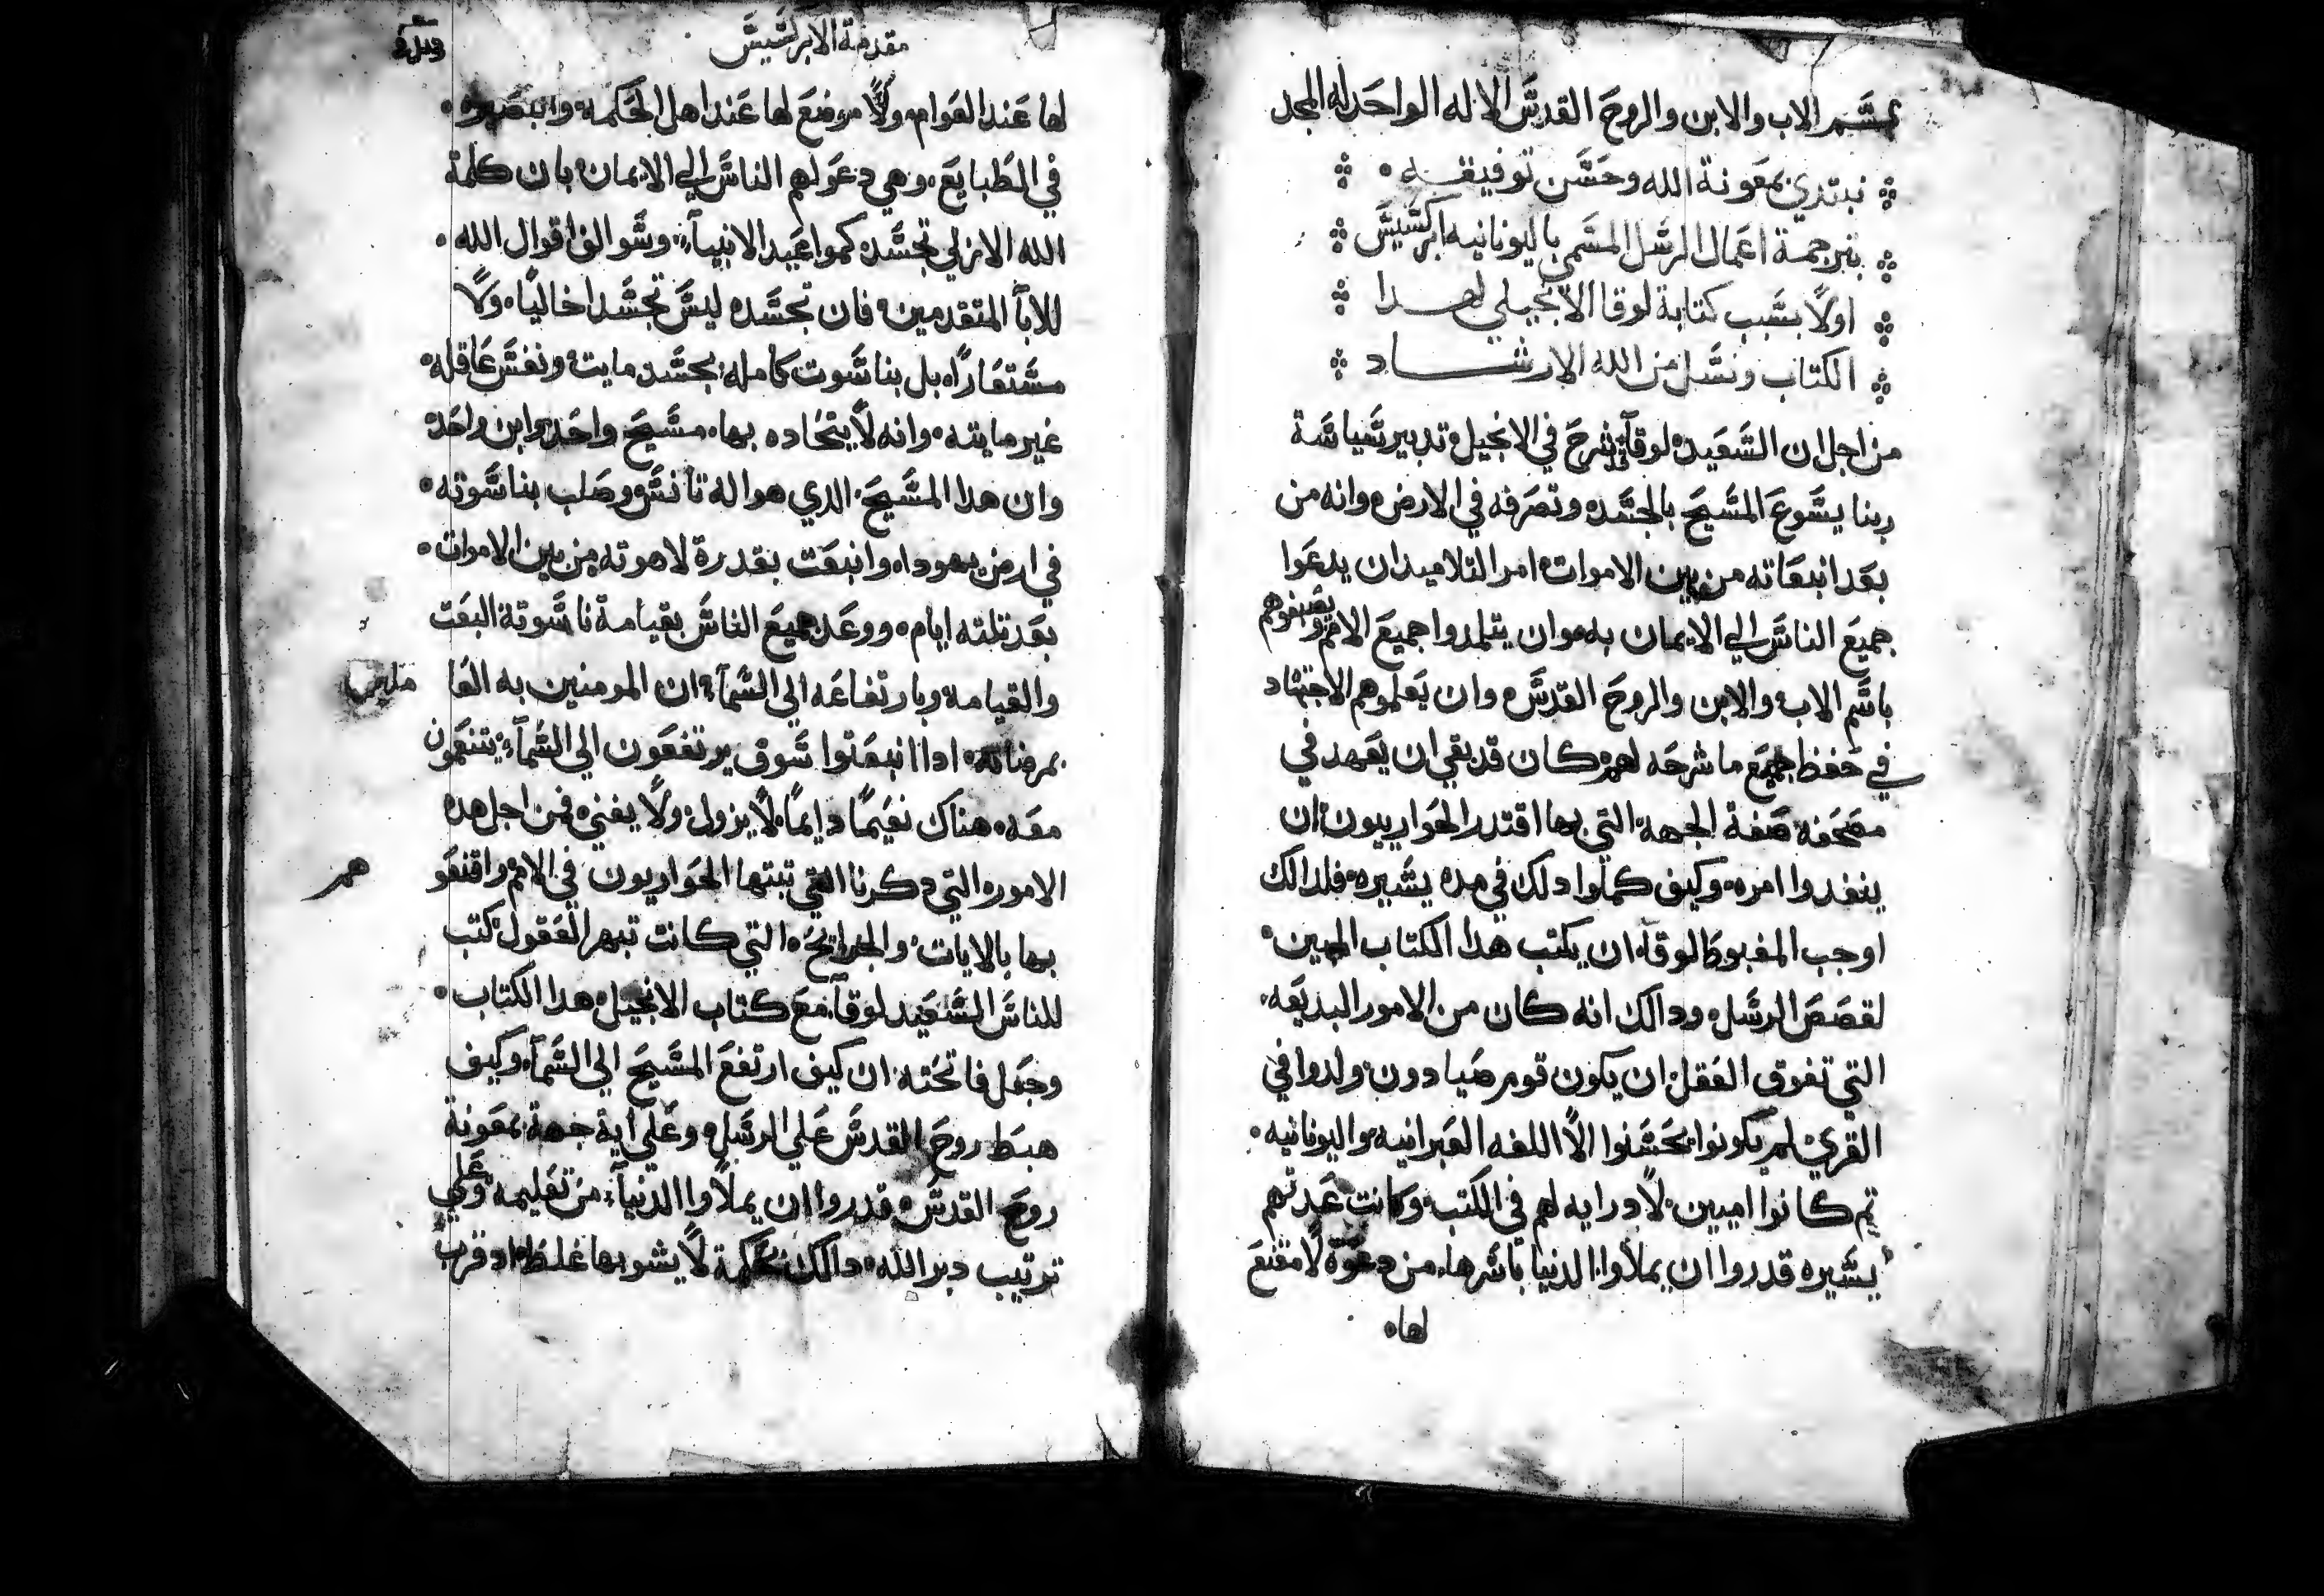 بسم الاب والابن والروح القدس الاله الواحد له المجد
نبتدي بمعونة الله وحسن توفيقه
بترجمة اعمال الرسل المسمي باليونانيه ابركسيس
اولا بسبب كتابة لوقا الانجيلي لهدا
الكتاب ونسل من الله الارشاد
من اجل ان السعيد لوقا قد شرح في الانجيل تدبير سياسة
ربنا يسوع المسيح بالجسد وتصرفه في الارض وانه من
بعد انبعاته من بين الاموات امر التلاميد ان يدعوا
جميع الناس الي الايمان به وان يتلمدوا جميع الامم ويصبغوهم
باسم الاب والابن والروح القدس وان يعلموهم الاجتهاد
في حفظ جميع ما شرحه لهم كان قد بقي ان يعهد في
مصحفه صفة الجهه التي بها اقتدر الحوارييون ان
ينفدوا امره وكيف كملوا دلك في مده يسيره فلدالك
اوجب المغبوط لوقا ان يكتب هدا الكتاب المبين
لقصص الرسل ودالك انه كان من الامور البديعه
التي تفوق العقل ان يكون قوم صيادون ولدوا في
القري لم يكونوا يحسنوا الا اللغه العبرانيه واليونانيه
تم كانوا اميين لا درايه لهم في الكتب وكانت عدتهم
يسيره قدروا ان يملاوا الدنيا باسرها من دعوة لا مقنع
لها
مقدمة الابركسيس
لها عند العوام ولا موضع لها عند اهل الحكمه
في الطبايع وهي دعولهم الناس الي الايمان بان كلمة
الله الازلي تجسد كمواعيد الانبيآ وسوالف اقوال الله
للابآ المتقدمين فان تجسده ليس تجسدا خاليا ولا
مستعارا بل بناسوت كامله بجسد مايت ونفس عاقله
غير مايته وانه لا يتحاده بها مسيح واحد وابن واحد
وان هدا المسيح الدي هو اله تانس وصلب بناسوته
في ارض يهودا وانبعت بقدرة لاهوته من بين الاموات
بعد تلته ايام ووعد جميع الناس بقيامة ناسوتة البعت
والقيامه وبارتفاعه الي السمآ ان المومنين به
بمرضاته ادا انبعتوا سوف يرتفعون الي السمآ يتنعمون
معه هناك نعيما دايما لا يزول ولا يفني فمن اجل هده
الامور التي دكرنا التي تبتها الحواريون في الامم واقنعو
هم
بها بالايات والجرايح التي كانت تبهر العقول كتب
للناس السعيد لوقا مع كتاب الانجيل هدا الكتاب
وجعل فاتحته ان كيف ارتفع المسيح الي السمآ وكيف
هبط روح القدس علي الرسل وعلي اية جهة بمعونة
روح القدس قدروا ان يملاوا الدنيآ من تعليمه وعلي
ترتيب دبر الله دالك بحكمة لا يشوبها غلط اد قرب